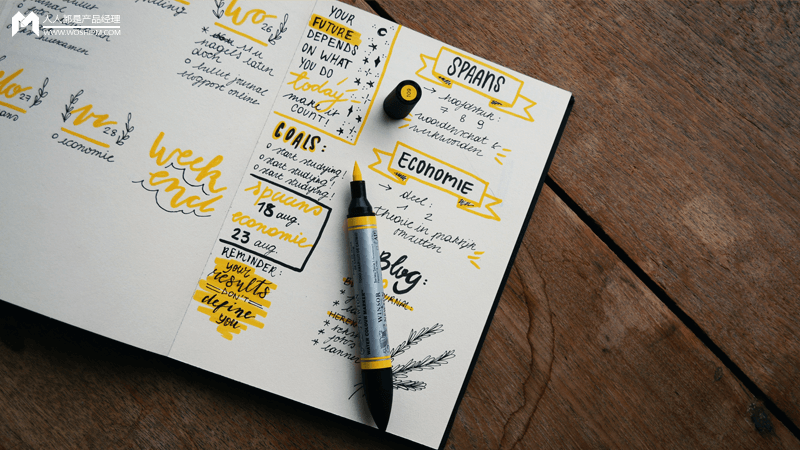 人人都是产品经理
WWW.WOSHIPM.COM
wo 26
nagels laten
doen
bullet journal
support online
27
vr 28
economie
week
end
YOUR
FUTURE
DEPENDS
ON WHAT
YOU DO
today
make it
COUNT!
GOALS:
start studying!
start studying!
start studying!
spaans
18 aug.
economie
23 aug.
REMINDER:
your
results
DON'T
define
you
SPAANS
hoofdstuk:
7 8 9
woordenschat &
werkwoorden
ECONOMIE
deel:
1 2
theorie in praktijk
omzetten
Blog:
WINSOR
banner